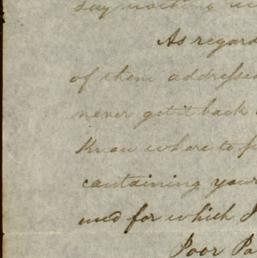 day
As regard
of them addresse
never get it back
Know where to p
containing your
and for which I
Poor Pa